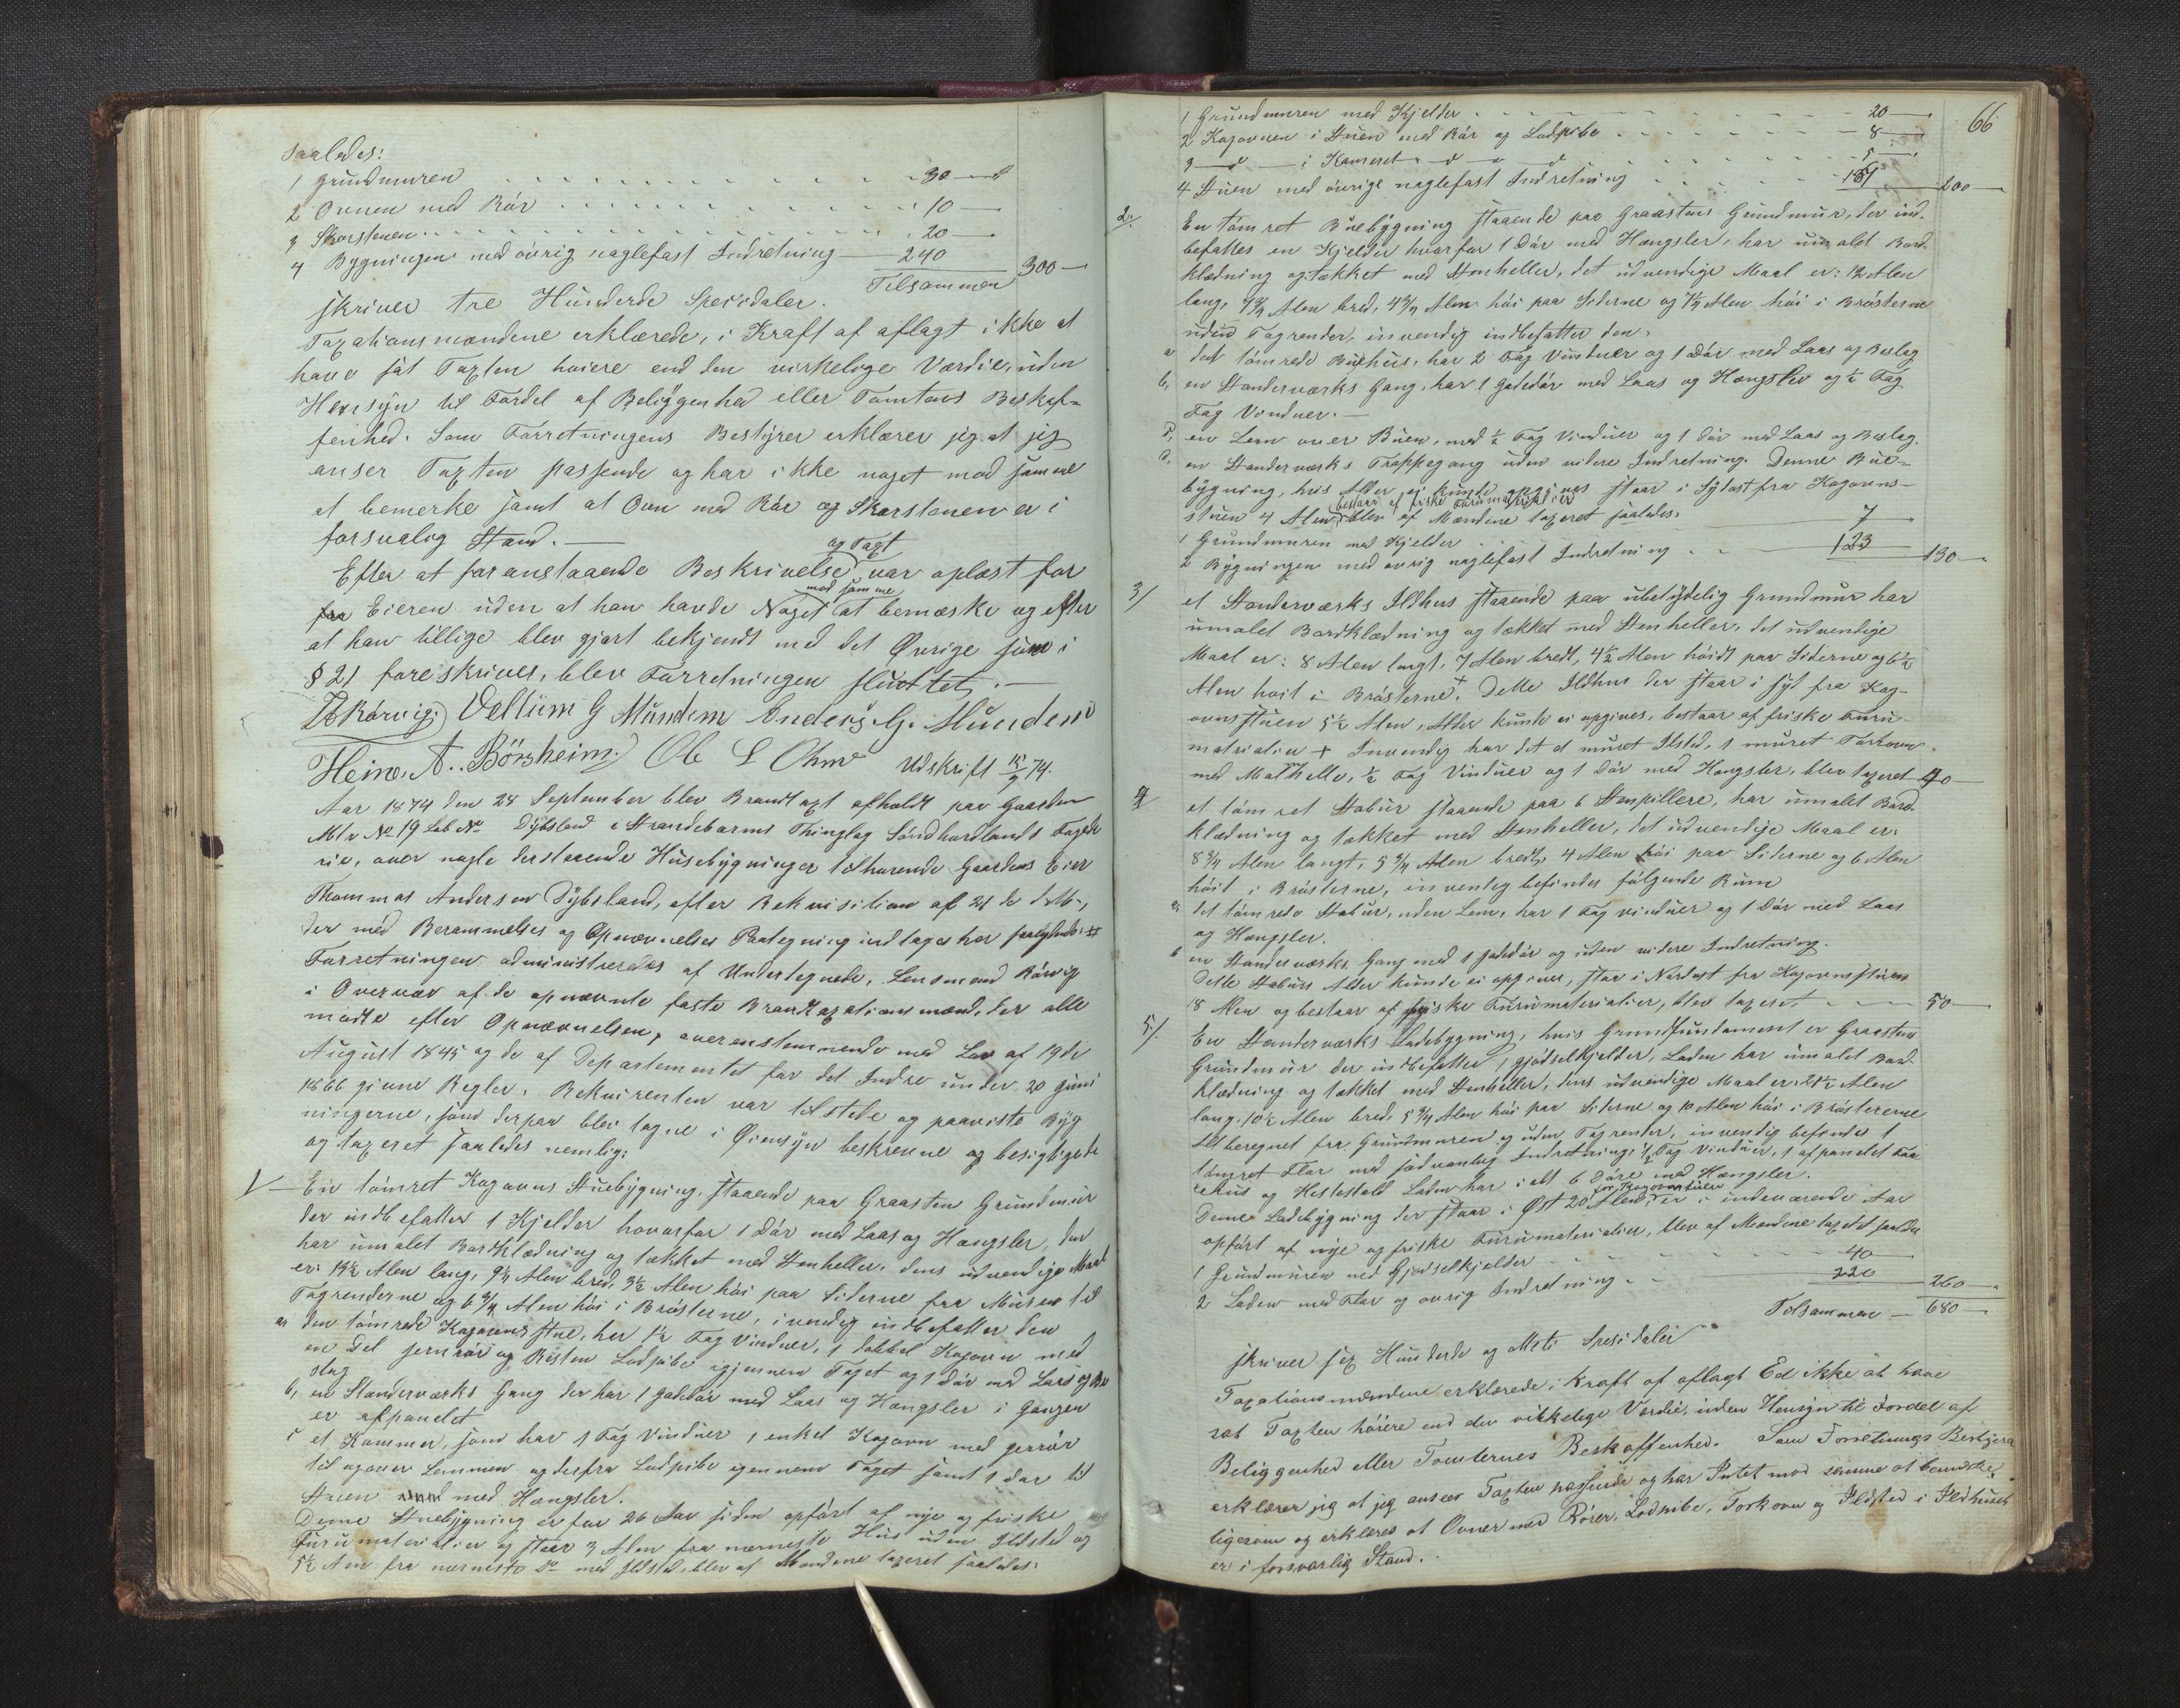 Saaledes:
1 Grundmuren . . . . . . . . . . . 30 — "
2 Ovnen med Rör . . . . . . . . . . . 10 —
3 Skorstenen . . . . . . . . . . . 20 —
4 Bygningen med övrig naglefast Indretning — 240
Tilsammen 300 —
skriver tre Hunderde Specidaler.
Taxationsmændene erklærede, i Kraft af aflagt ikke at
have sat Taxten höiere end den virkelige Værdie, uden
Hensyn til Fordel af Beliggenhed eller Tomtens Beskaf-
fenhed. Som Forretningens Bestyrer erklærer jeg at jeg
anser Taxten passende og har ikke noget mod samme
at bemerke samt at Ovn med Rör og Skorstenen er i
forsvalig Stand. —
Efter at foranstaaende Beskrivelse og Taxt var oplæst for
Eieren uden at han havde Noget mod samme at bemærke og efter
at han tillige blev gjort bekjendt med det Øvrige som i
§ 21 foreskrives, blev Forretningen sluttet. —
Rörvig. Vellum G Mundem Anders. G. Munden
Heine. A. Börsheim. Ole L Ohm Udskrift 15/9 74.
Aar 1874 den 28 September blev Brandtaxt afholdt paa Gaarden
Mtr No 19 Lob No Dybsland i Strandebarms Thinglag Söndhordlands Fogde
rie, over nogle derstaaende Husebygninger tilhørende Gaardens Eier
Thommas Andersen Dybsland, efter Rekvisition af 21 de dMts,
der med Berammelses og Opnævnelses Paategning indtages her saalydende: #
Forretningen administreredes af Undertegnede, Lensmand Rörvig
i Overvær af de opnævnte faste Brandtaxationsmænd, der alle
mødte efter Opnævnelsen, overensstemmende med Lov af 19de
August 1845 og de af Departementet for det Indre under 20 Juni
1866 givne Regler. Rekvirenten var tilstede og paaviste Byg
ningerne, som derpaa blev tagne i Øiensyn beskrevne og besigtigede
og taxeret saaledes nemlig:
1/ En tömret Kogovns Stuebygning, staaende paa Graasten Grundmur
der indbefatter 1 Kjelder hvorfor 1 Dör med Laas og Hængsler, der
har umalet Bordklædning og tækket med Stenheller, dens udvendige Maal
er: 13½ Alen lang, 9¼ Alen bred, 3½ Alen höi paa Siderne fra Muren til
Tagrenderne og 6¾ Alen höi i Brösterne, invendig indbefatter den
a, den tömrede Kogovnsstue, har 1½ Fag Vinduer, 1 dobbel Kogovn med
en Del jernrör og Resten Lodpibe igjennem Taget og 1 Dör med Laas og Be
slag
b, en Standerværks Gang der har 1 Gadedör med Laas og Hængsler i Gangen
er afpanelet
c et Kammer, som har 1 Fag Vinduer 1 enkel Kogovn med jernrör
til ogover Lemmen og derfra Lodpibe igennem Taget samt 1 Dör til
Stuen med Hængsler.
Denne Stuebygning er for 26 Aar siden opfört af nye og friske
Furumaterialier og staar 3 Alen fra nærmeste Hus uden Ildsted og
5½ Alen fra nærmeste Do med Ildsted, blev af Mændene taxeret saaledes:
66
1 Grundmuren med Kjelder . . . . . . . . . 20 —
2 Kogovnen i Stuen med Rör og Lodpibe . . . . . . . — 8 —
3 —"— i Kameret " — " — . . . . . . . 5 —
4 Stuen med övrige naglefast Indretning . . . . . 167 — 200 —
2/. En tömret Buebygning staaende paa Graastens Grundmur, der ind-
befattes en Kjelder hvorfor 1 Dör med Hængsler, har umalet Bord-
klædning og tækket med Stenheller, det udvendige Maal er: 12 Alen
lang, 7¾ Alen bred, 4¾ Alen höi paa Siderne og 7¼ Alen höi i Brösterne
uden Tagrender, invendig indbefatter den.
a det tömrede Buehus, har 2 Fag Vinduer og 1 Dör med Laas og Beslag
b, en Standerværks Gang, har 1 Gadedör med Laas og Hængsler og ½ Fag
Fag Vinduer. —
c, en Lem over Buen, med ½ Fag Vinduer og 1 Dör med Laas og Beslag.
d, en Standerværks Trappegang uden videre Indretning. Denne Bue-
bygning, hvis Alder ei kunde opgives staar i Sydost fra Kogovns-
stuen 4 Alen, bestaar af friske Furumaterialier blev af Mændene taxeret saaledes.
1 Grundmuren med Kjelder . . . . . 7 —
2 Bygningen med övrig naglefast Indretning . . . 123 — 130 —
3/ et Standerværks Ildhus staaende paa ubetydelig Grundmur har
umalet Bordklædning og tækket med Stenheller, det udvendige
Maal er: 8 Alen langt, 7 Alen bredt, 4½ Alen höidt paa Siderne og 6½
Alen höit i Brösterne. + Dette Ildhus der staar i Syd fra Kog-
ovnsstuen 5½ Alen, Alder kunde ei opgives, bestaar af friske Furu-
materialier + Invendig har det et muret Ilsted, 1 muret Torkovn
med Malthelle, ½ Fag Vinduer og 1 Dör med Hængsler, blev taxeret 40 —
4/ et tömret Stabur staaende paa 6 Stenpillere, har umalet Bord-
klædning og tækket med Stenheller, det udvendige Maal er:
8¾ Alen langt, 5¾ Alen bredt, 4 Alen höi paa Siderne og 6 Alen
höit i Brösterne, invendig befindes fölgende Rum
a, det tömrede Stabur, uden Lem, har 1 Fag vinduer og 1 Dör med Laas
og Hængsler.
b en Standerværks Gang med 1 gadedör og uden videre Indretning.
Dette Staburs Alder kunde ei opgives, staar i Nordost fra Kogovnsstuen
18 Alen og bestaar af friske Furumaterialier, blev taxeret . . — 50 —
5/. En Standerværks Ladebygning, hvis Grundfundament er Graastens
Grundmur der indbefatter 1 gjödselkjelder, Laden har umalet Bord-
klædning og tækket med Stenheller, dens udvendige Maal er: 21½ Alen
lang, 10½ Alen bred, 5¾ Alen höi paa Siderne og 10 Alen höi i Brösterne
alt beregnet fra Grundmuren og uden Tagrender, invendig befindes 1
tömret Flor med sædvanlig Indretning, ½ Fag Vinduer, 1 afpanelet Faa
rehus og Hestestald Laden har i alt 6 Döre med Hængsler.
Denne Ladebygning der staar i Øst 20 Alen for Kogovnstuen er i indeværende Aar
opfört af nye og friske Furumaterialier, blev af Mændene taxeret saaledes
1 Grundmuren med Gjødselkjelder . . . . . . 40 —
2 Laden med Flor og övrig Indretning . . 220 — 260 —
Tilsammen — 680 —
skriver sex Hunderde og otteti Spesidaler
Taxationsmændene erklærede i Kraft af aflagt Ed ikke at have
sat Taxten höiere end den virkelige Værdi, uden Hensyn til Fordel af
Beliggenhed eller Tomternes Beskaffenhed. Som Forretnings Bestyrer
erklærer jeg at jeg anseer Taxten passende og har Intet mod samme at bemærke,
ligesom og erklæres at Ovner med Rörer, Lodpibe, Torkovn og Ildsted i Ildhuset
er i forsvarlig Stand.